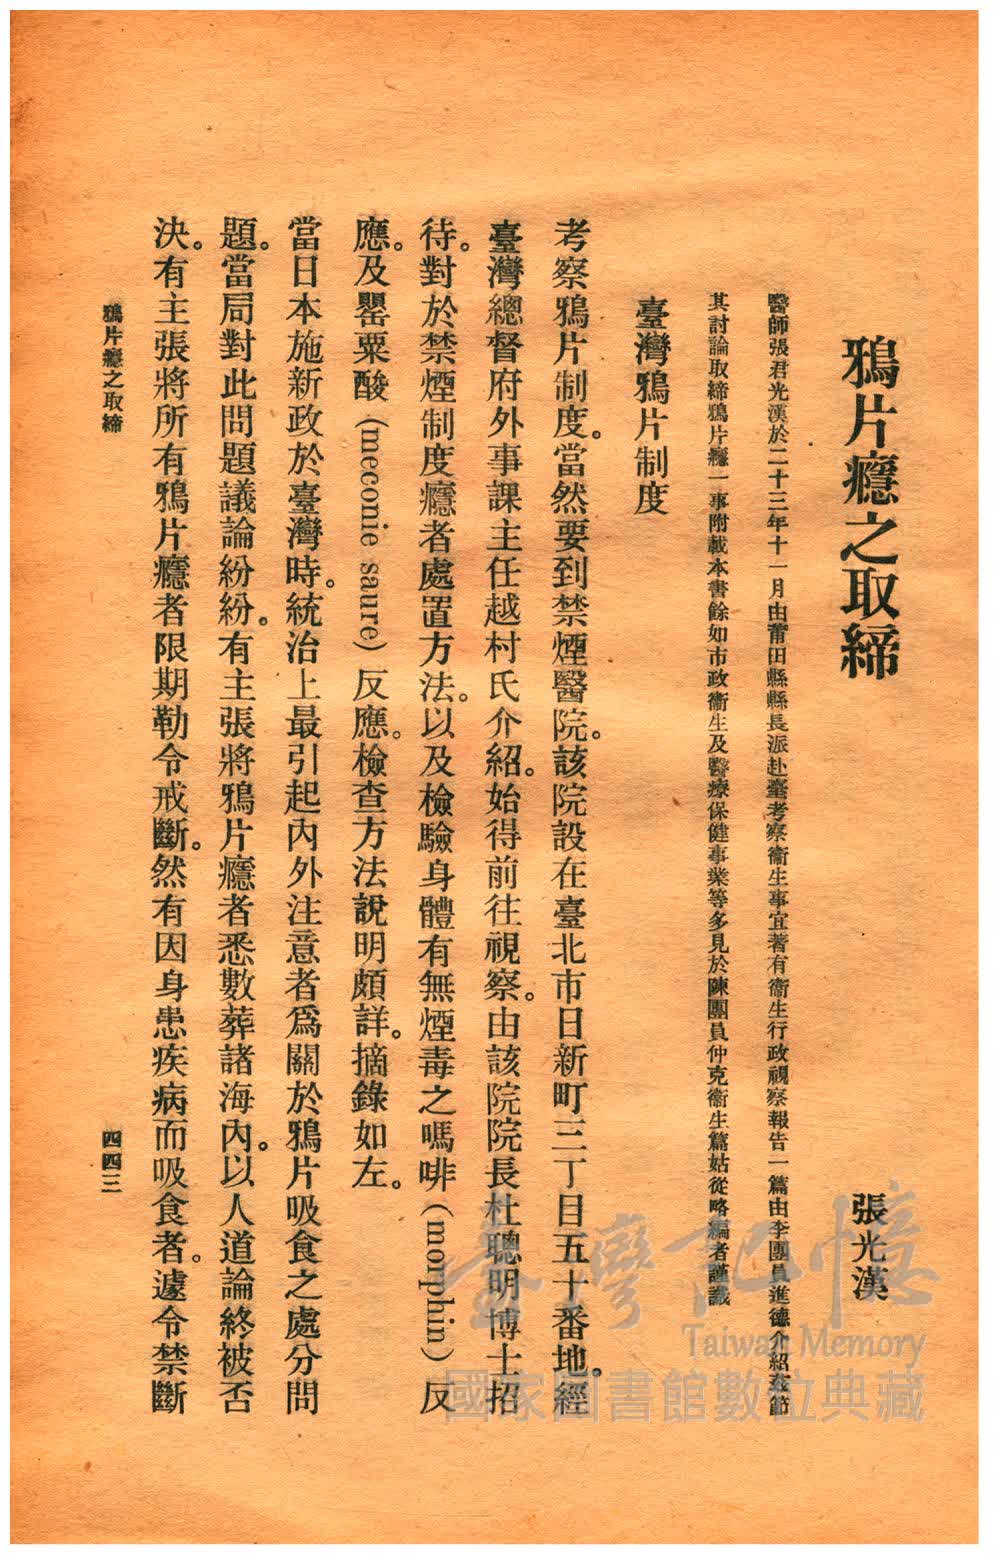 鴉片癮之取締
張光漢
醫師張君光漢於二十三年十一月由莆田縣縣長派赴臺考察衞生事宜著有衞生行政視察報告一篇由李團員進德介紹茲節
其討論取締鴉片癮一事附載本書餘如市政衞生及醫療保健事業等多見於陳團員仲克衞生篇姑從略編者謹識
臺灣鴉片制度
考察鴉片制度。當然要到禁煙醫院。該院設在臺北市日新町三丁目五十番地。經
臺灣總督府外事課主任越村氏介紹。始得前往視察。由該院院長杜聰明博士招
待。對於禁煙制度癮者處置方法。以及檢驗身體有無煙毒之嗎啡(morphin)反
應。及罌粟酸(meconie saure)反應。檢查方法說明頗詳。摘錄如左。
當日本施新政於臺灣時。統治上最引起內外注意者爲關於鴉片吸食之處分問
題。當局對此問題議論紛紛。有主張將鴉片癮者悉數葬諸海內。以人道論終被否
決。有主張將所有鴉片癮者限期勒令戒斷。然有因身患疾病而吸食者。遽令禁斷
鴉片癮之取締
四四三
臺灣記憶
Taiwan Memory
國家圖書館數位典藏